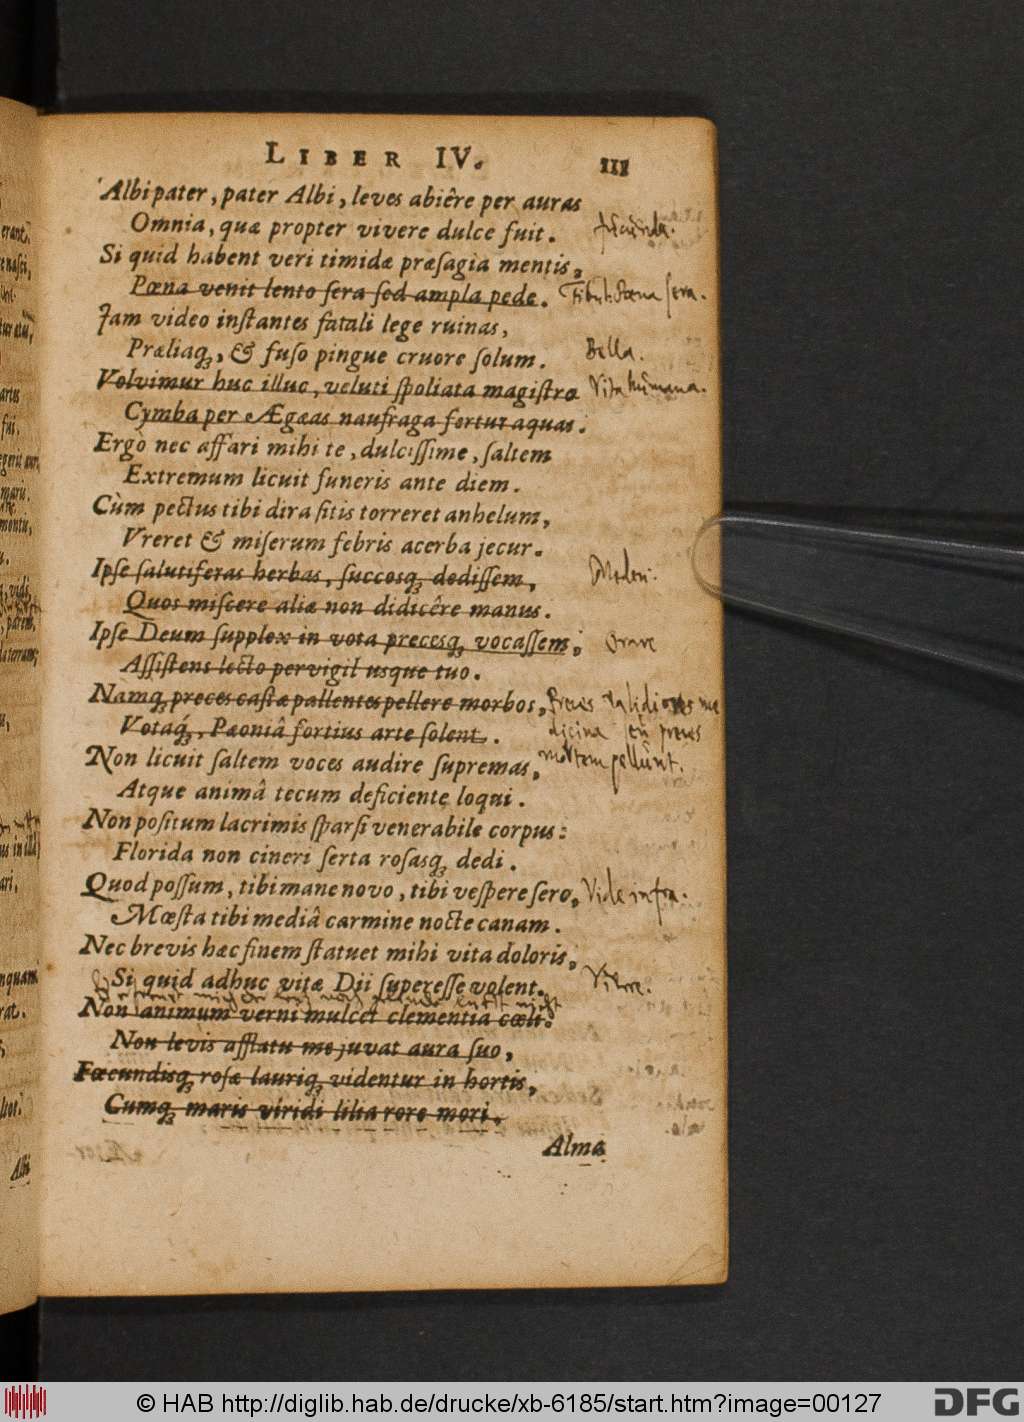 LIBER IV. 111
Albi pater, pater Albi, leves abiêre per auras
Omnia, quæ propter vivere dulce fuit. Iucunda.
Si quid habent veri timidæ præsagia mentis,
Pœna venit lento sera sed ampla pede. Tibul: Pœna sera.
Jam video instantes fatali lege ruinas,
Præliaq́, & fuso pingue cruore solum. Bella.
Volvimur huc illuc, veluti spoliata magistro Vita humana.
Cymba per Ægæas naufraga fertur aquas.
Ergo nec affari mihi te, dulcissime, saltem
Extremum licuit funeris ante diem.
Cùm pectus tibi dira sitis torreret anhelum,
Vreret & miserum febris acerba jecur.
Ipse salutiferas herbas, succosq́ dedissem, Mederi.
Quos miscere aliæ non didicêre manus.
Ipse Deum supplex in vota precesq́ vocassem, Orare
Assistens lecto pervigil usque tuo.
Namq́ preces castæ pallentes pellere morbos, Preces validiores me
Votaq́, Pæoniâ fortius arte solent. dicina seu preces
Non licuit saltem voces audire supremas, mortem pellunt.
Atque animâ tecum deficiente loqui.
Non positum lacrimis sparsi venerabile corpus:
Florida non cineri serta rosasq́ dedi.
Quod possum, tibi mane novo, tibi vespere sero, Vide infra.
Mœsta tibi mediâ carmine nocte canam.
Nec brevis hæc finem statuet mihi vita doloris,
Si quid adhuc vitæ Dii superesse volent. Vivere.
Non animum verni mulcet clementia cœli.
Non levis afflatu me juvat aura suo,
Fœcundisq́ rosæ lauriq́ videntur in hortis,
Cumq́ maris viridi lilia rore mori.
Alma
Albi
© HAB http://diglib.hab.de/drucke/xb-6185/start.htm?image=00127 DFG